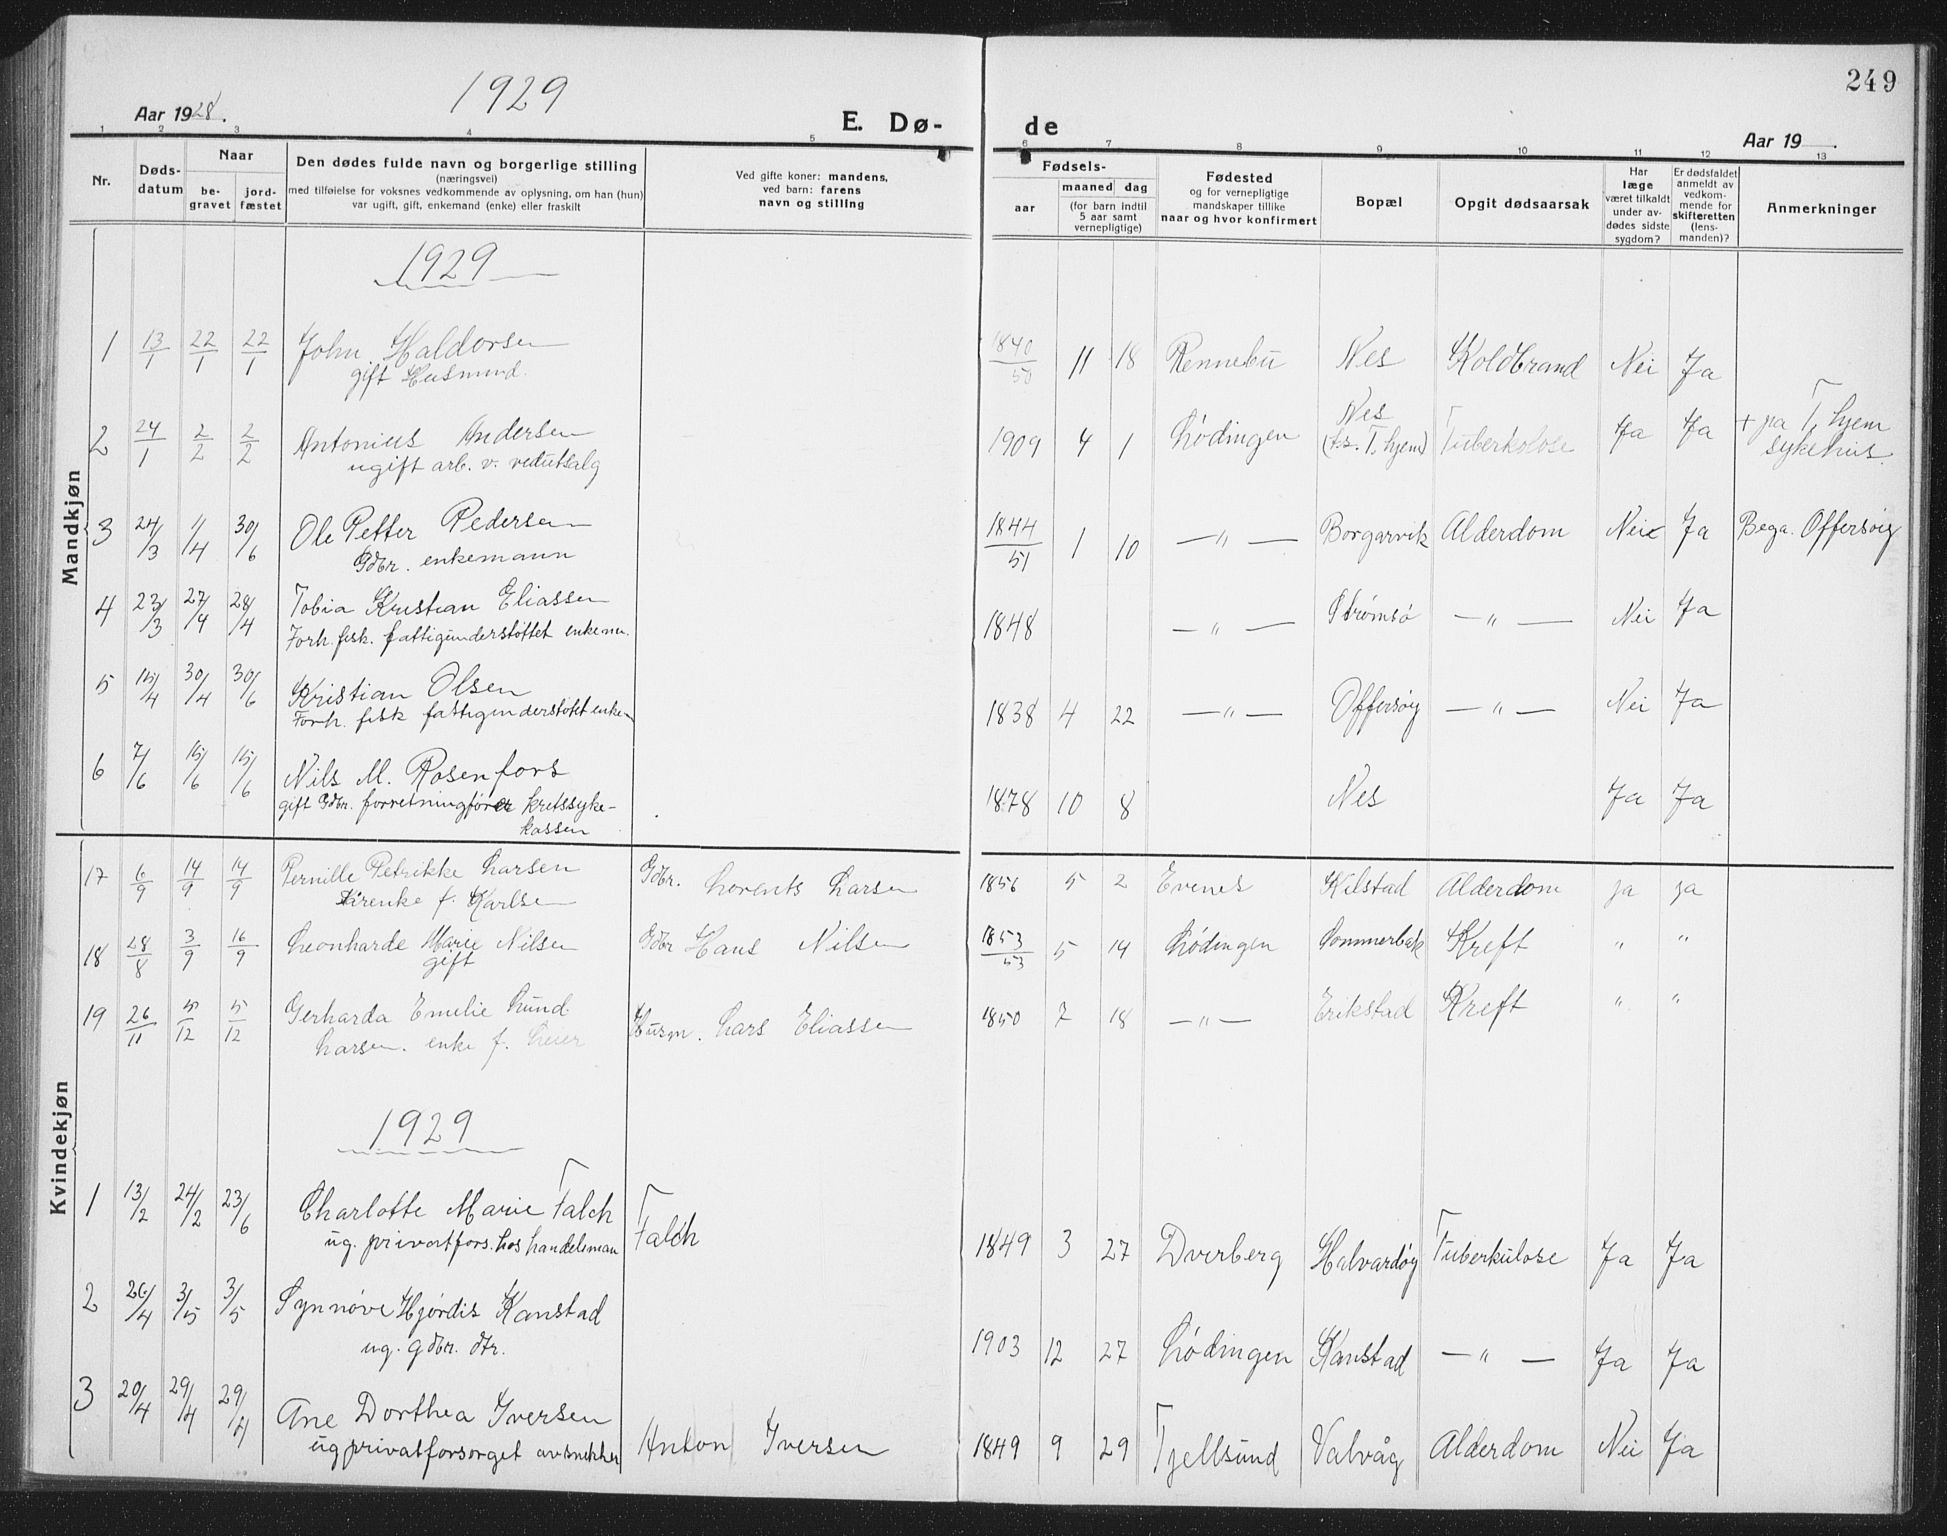 249
1929
Aar 1928.
E. Dø-
de
Aar 19 .
1 2 3 4 5 6 7 8 9 10 11 12 13
Nr.
Døds-
datum
Naar
be-
gravet
jord-
fæstet
Den dødes fulde navn og borgerlige stilling
(næringsvei)
med tilføielse for voksnes vedkommende av oplysning, om han (hun)
var ugift, gift, enkemand (enke) eller fraskilt
Ved gifte koner: mandens,
ved barn: farens
navn og stilling
Fødsels-
aar
maaned dag
(for barn indtil
5 aar samt
vernepligtige)
Fødested
og for vernepligtige
mandskaper tillike
naar og hvor konfirmert
Bopæl
Opgit dødsaarsak
Har
læge
været tilkaldt
under av-
dødes sidste
sygdom?
Er dødsfaldet
anmeldt av
vedkom-
mende for
skifteretten
(lens-
manden)?
Anmerkninger
Mandkjøn
1929
1 13/1 22/1 22/1 John Haldorsen 1840/50 11 18 Rennebu Nes Koldbrand Nei Ja
gift Husmand.
2 24/1 2/2 2/2 Antonius Andersen 1909 4 1 Lødingen Nes (t.s. T. hjem) Tuberkolose Ja Ja + pa T. hjem
ugift arb. v. vedutsalg sykehus.
3 24/3 1/4 30/6 Ole Petter Pedersen 1844/51 1 10 —"— Borgarvik Alderdom Nei Ja Bega. Offersøig
Gdbr. enkemann
4 23/3 27/4 28/4 Tobia Kristian Eliassen 1848 —"— Strømsø —"— Nei Ja
Forh. fisk. fattigunderstøttet enkem.
5 15/4 30/4 30/6 Kristian Olsen 1838 4 22 —"— Offersøy —"— Nei Ja
Forh. fisk fattigenderstøtet enke-
6 7/6 15/6 15/6 Nils M. Rosenfors 1878 10 8 Nes Ja Ja
gift Gdbr. forretningfører kretssyke-
kassen
Kvindekjøn
17 6/9 14/9 14/9 Pernille Petrikke Larsen Gdbr. Lorents Larsen 1856 5 2 Evenes Kilstad Alderdom ja ja
enke f. Karlsen
18 28/8 3/9 16/9 Leonharde Marie Nilsen Gdbr Hans Nilsen 1853/53 5 14 Lødingen Sommerbak Kreft " "
gift
19 26/11 5/12 5/12 Gerharda Emelie Lund Husm. Lars Eliassen 1850 7 18 —"— Erikstad Kreft " "
Larsen. enke f. Leier
1929
1 13/2 24/2 23/6 Charlotte Marie Falch Falch 1849 3 27 Dverberg Halvardøy Tuberkulose Ja Ja
ug. privatfors. hos handelsman
2 26/4 3/5 3/5 Synnøve Hjørdis Kanstad 1903 12 27 Lødingen Kanstad —"— Ja Ja
ug. gdbr. dtr.
3 20/4 29/4 29/4 Ane Dorthea Iversen Anton Iversen 1849 9 29 Tjellsund Valvåg Alderdom Nei Ja
ug privatforsorget av snekker